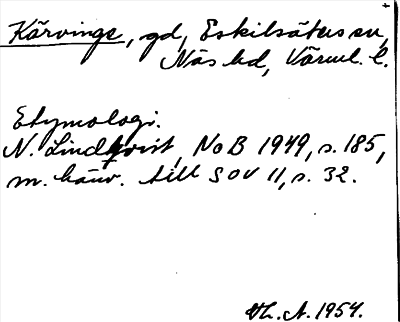 Kärvinge, gd, Eskilsäters sn,
Näs hd, Värml. l.
Etymologi.
N. Lindqvist, NoB 1949, s. 185,
m. hänv. till SOV 11, s. 32.
Vh. A. 1954.